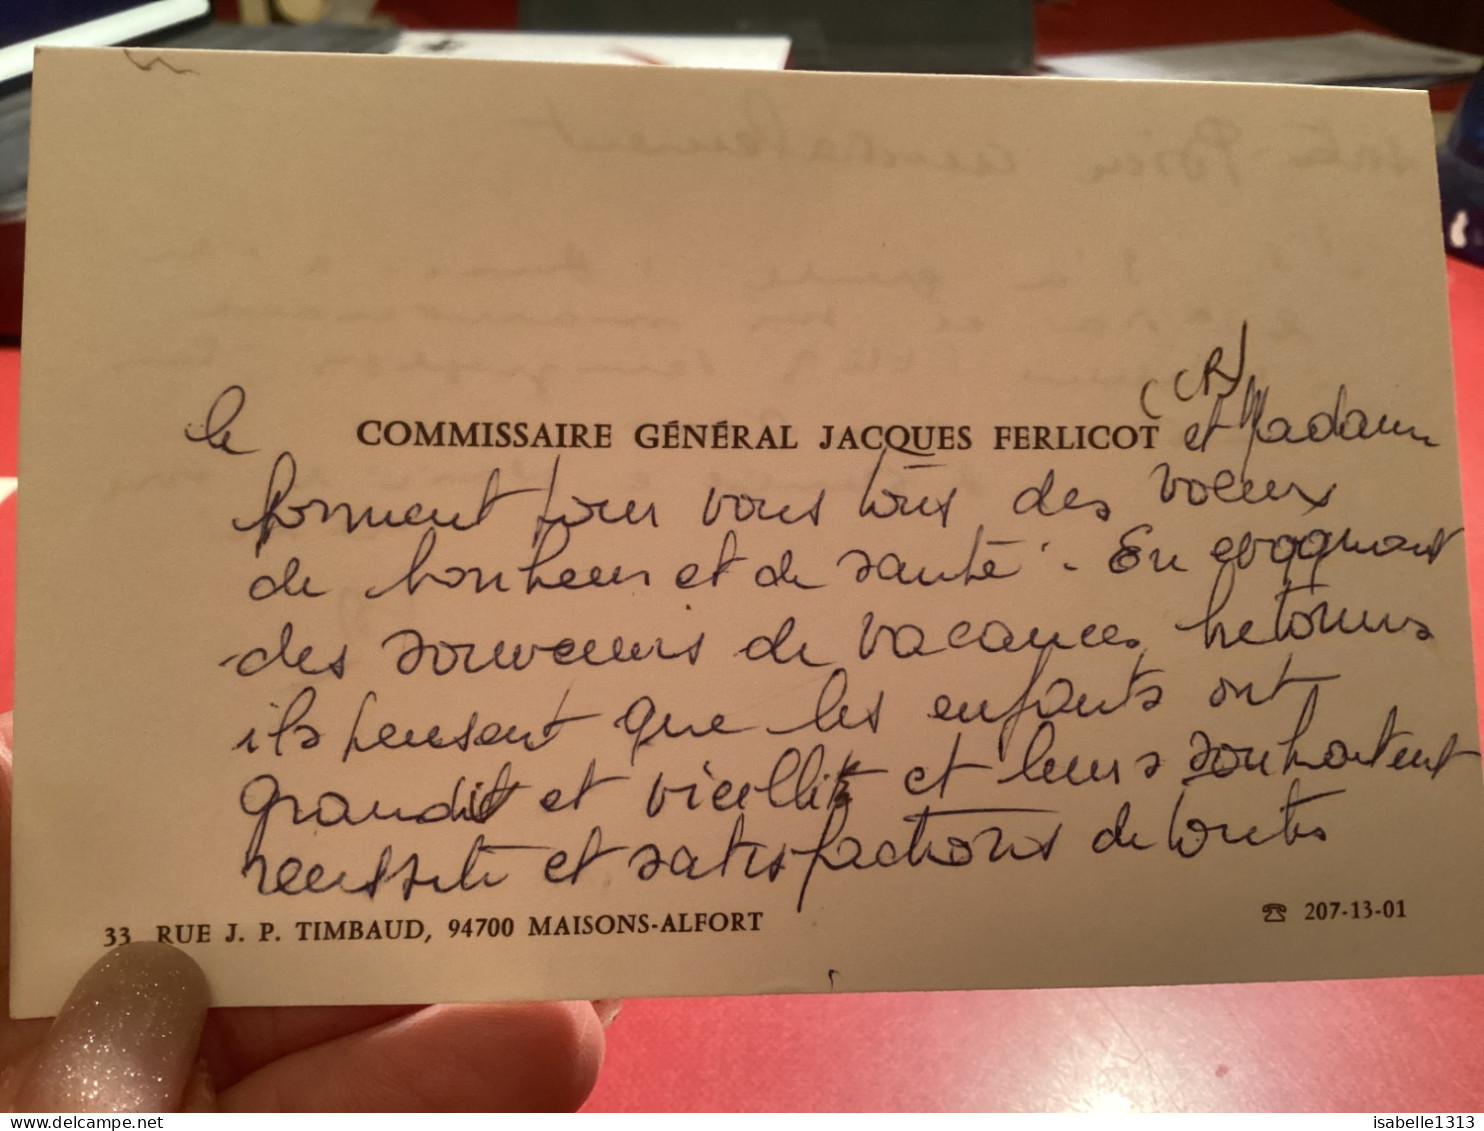 le COMMISSAIRE GÉNÉRAL JACQUES FERLICOT (CR) et Madame
forment pour vous tous des voeux
de bonheur et de santé. En evoquant
des souvenirs de vacances
ils pensent que les enfants ont
grandit et vieillit et leurs souhaitent
reussite et satisfactions de toutes
33 RUE J. P. TIMBAUD, 94700 MAISONS-ALFORT
☎ 207-13-01
isabelle1313